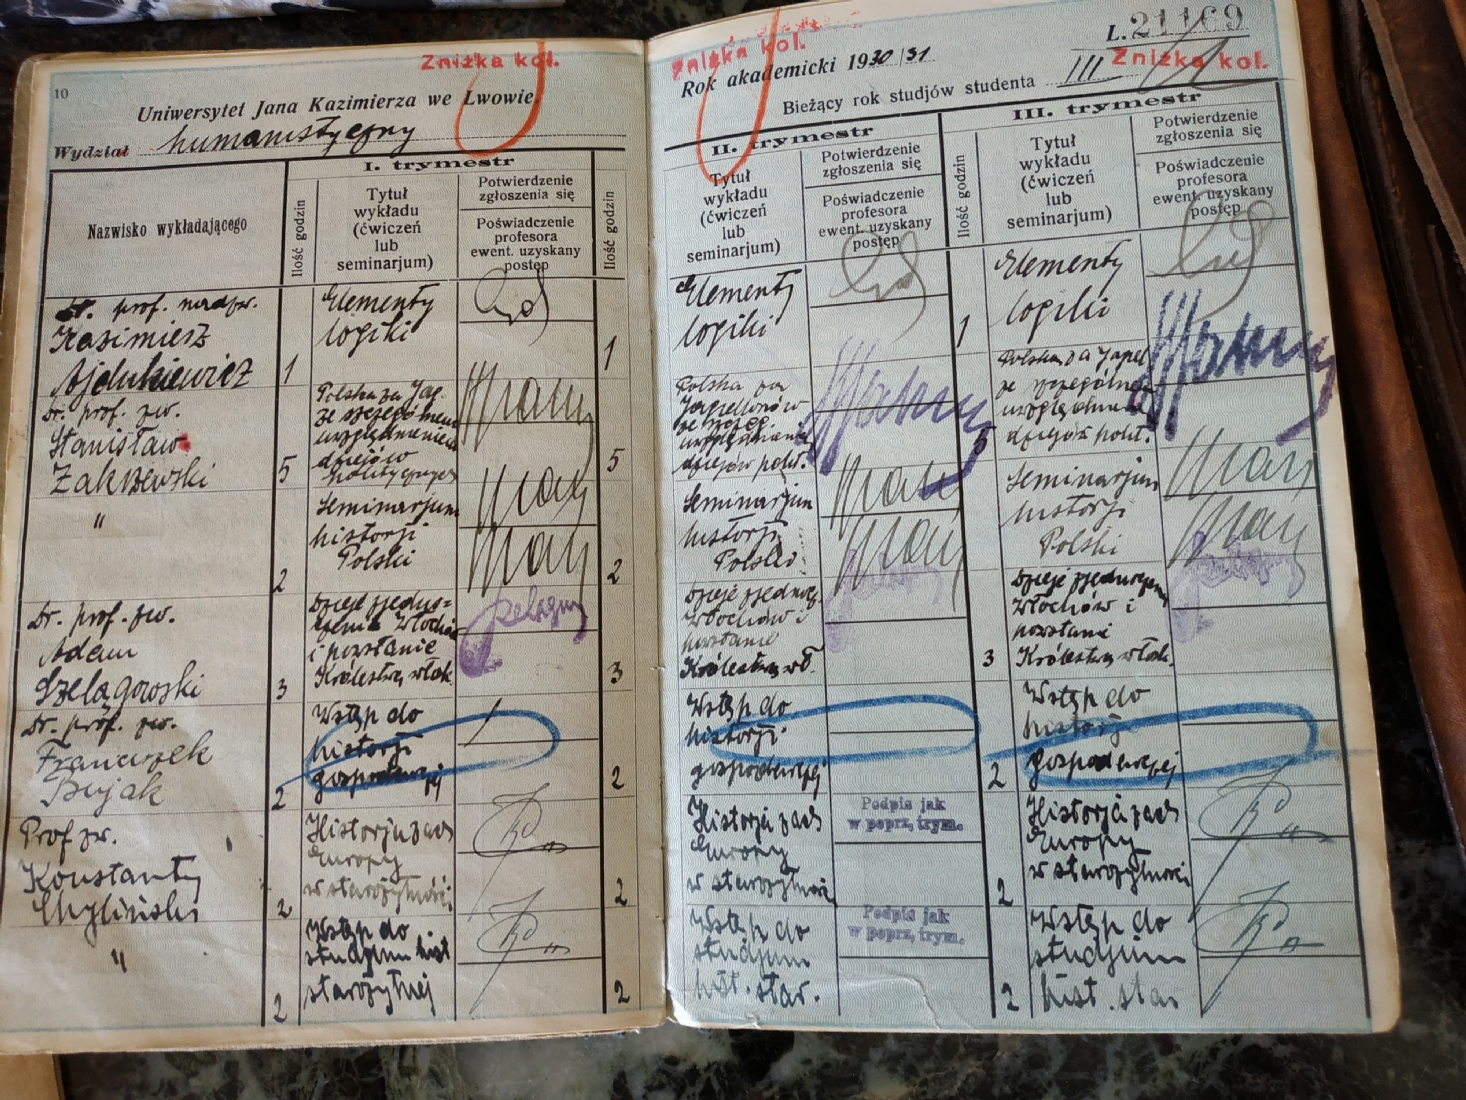 10
Zniżka kol.
Uniwersytet Jana Kazimierza we Lwowie.
Wydział humanistyczny
I. trymestr
Nazwisko wykładającego
Ilość godzin
Tytuł
wykładu
(ćwiczeń
lub
seminarjum)
Potwierdzenie
zgłoszenia się
Poświadczenie
profesora
ewent. uzyskany
postęp
Ilość godzin
Dr. prof. nadzw.
Kazimierz
Ajdukiewicz
1
Elementy
logiki
1
Dr. prof. zw.
Stanisław
Zakrzewski
5
Polska za Jag.
ze szczególnem
uwzględnieniem
dziejów
politycznych
5
"
2
Seminarjum
historji
Polski
2
Dr. prof. zw.
Adam
Szelągowski
3
Dzieje zjedno=
czenia Włochów
i powstanie
Królestwa włosk.
3
Dr. prof. zw.
Franciszek
Bujak
2
Wstęp do
historji
gospodarczej
2
Prof. zw.
Konstanty
Chyliński
2
Historja zach
Europy
w starożytności
2
"
2
Wstęp do
studjum hist
starożytnej
2
Zniżka kol.
L. 21169
Rok akademicki 1930/31
Zniżka kol.
Bieżący rok studjów studenta III
II. trymestr
Tytuł
wykładu
(ćwiczeń
lub
seminarjum)
Potwierdzenie
zgłoszenia się
Poświadczenie
profesora
ewent. uzyskany
postęp
Ilość godzin
III. trymestr
Tytuł
wykładu
(ćwiczeń
lub
seminarjum)
Potwierdzenie
zgłoszenia się
Poświadczenie
profesora
ewent. uzyskany
postęp
Elementy
logiki
1
Elementy
logiki
Polska za
Jagiellonów
ze szczeg.
uwzględnieniem
dziejów polit.
5
Polska za Jagiel
ze szczególnem
uwzględnieniem
dziejów polit.
Seminarjum
historji
Polski
Seminarjum
historji
Polski
Dzieje zjednocz.
Włochów i
powstanie
Królestwa wł.
3
Dzieje zjednoczenia
Włochów i
powstanie
Królestwa włosk.
Wstęp do
historji
gospodarczej
2
Wstęp do
historji
gospodarczej
Historja zach
Europy
w starożytności
Podpis jak
w poprz. trym.
2
Historja zach
Europy
w starożytności
Wstęp do
studjum
hist. star.
Podpis jak
w poprz. trym.
2
Wstęp do
studjum
hist. star